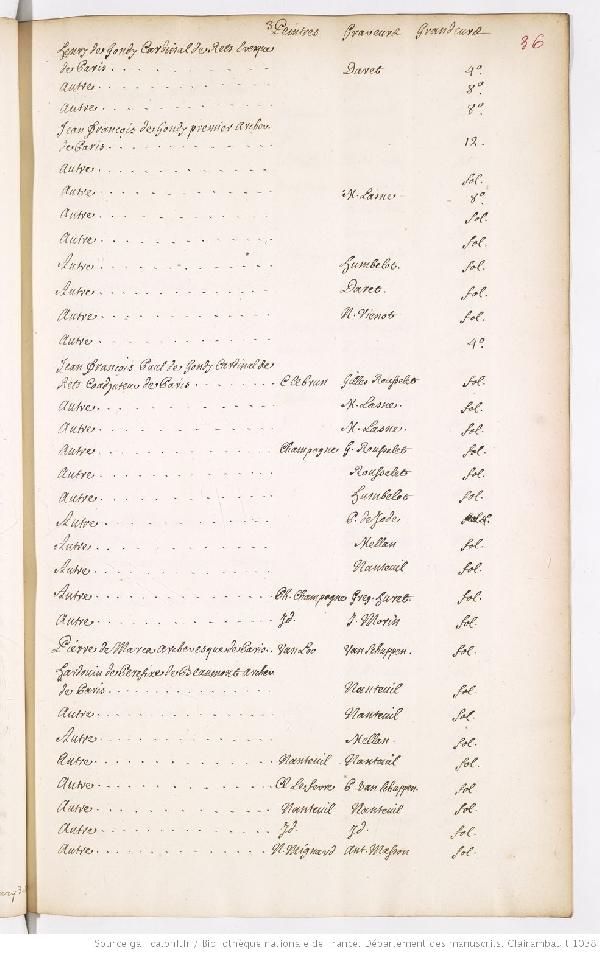 Peintres Graveurs Grandeurs 36
Henry de Gondy Cardinal de Rets Evesque
de Paris . . . Daret 4º
Autre . . . 8º
Autre . . . 8º
Jean François de Gondy premier Archev
de Paris . . . 12.
Autre . . . fol.
Autre . . . M. Lasne 8º
Autre . . . fol.
Autre . . . fol.
Autre . . . Humbelot. fol.
Autre . . . Daret. fol.
Autre . . . N. Vienot fol.
Autre . . . 4º
Jean François Paul de Gondy Cardinal de
Rets Coadjuteur de Paris . . . C le brun Gilles Rousselet fol.
Autre . . . M. Lasne. fol.
Autre . . . M. Lasne fol.
Autre . . . Champagne G. Rousselet fol.
Autre . . . Rousselet fol.
Autre . . . Humbelot fol.
Autre . . . P. de Jode
Autre . . . Mellan fol.
Autre . . . Nanteuil fol.
Autre . . . Ph. Champagne Greg. Huret. fol.
Autre . . . Jd. J. Morin fol.
Pierre de Marca Archevesque de Paris. Van Loo Van Schuppen. fol.
Hardouin de Perefixe de Beaumont Archev
de Paris . . . Nanteuil fol.
Autre . . . Nanteuil fol.
Autre . . . Mellan. fol.
Autre . . . Nanteuil Nanteuil fol.
Autre . . . Cl Lefevre P. Van Schuppen. fol
Autre . . . Nanteuil Nanteuil fol.
Autre . . . Jd. Jd. fol.
Autre . . . N. Mignard Ant. Masson fol.
Source gallica.bnf.fr / Bibliothèque nationale de France. Département des manuscrits. Clairambault 1038